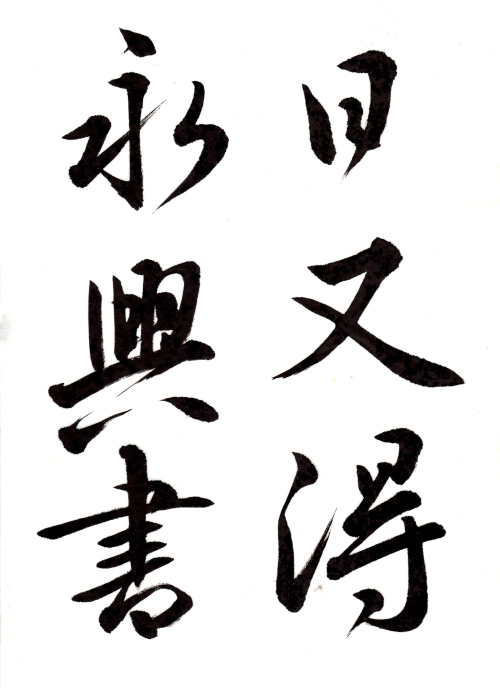 日又得
永興書